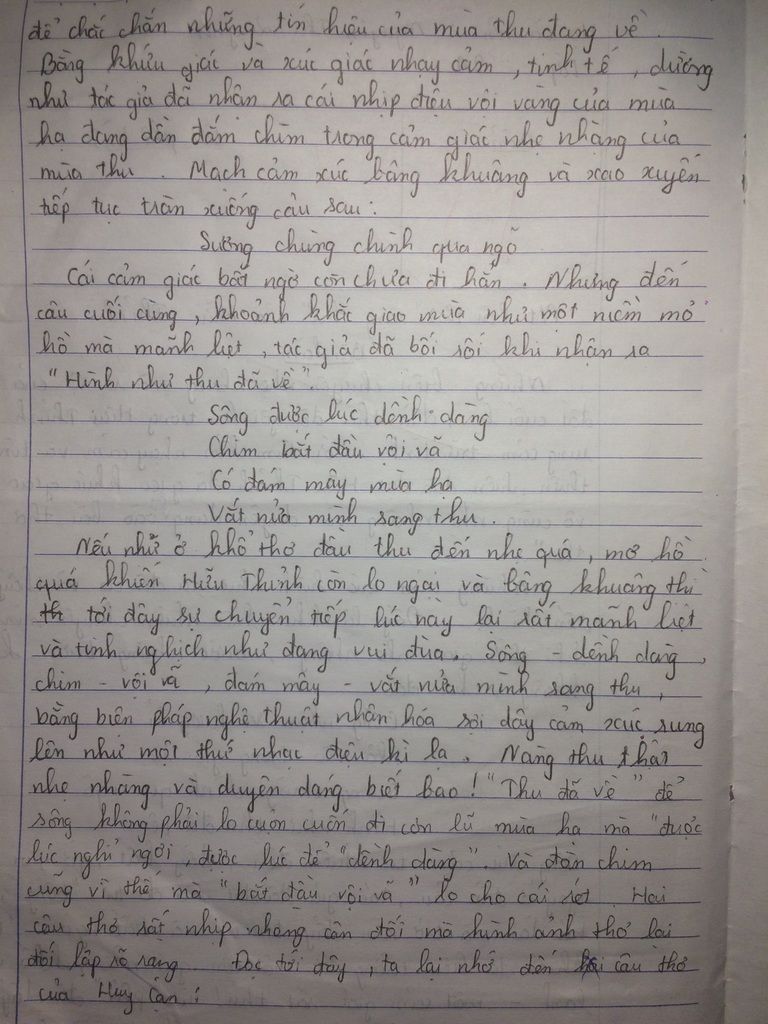 để chắc chắn những tín hiệu của mùa thu đang về.
Bằng khứu giác và xúc giác nhạy cảm, tinh tế, dường
như tác giả đã nhận ra cái nhịp điệu vội vàng của mùa
hạ đang dần đắm chìm trong cảm giác nhẹ nhàng của
mùa thu. Mạch cảm xúc bâng khuâng và xao xuyến
tiếp tục tràn xuống câu sau:
Sương chùng chình qua ngõ
Cái cảm giác bất ngờ còn chưa đi hẳn. Nhưng đến
câu cuối cùng, khoảnh khắc giao mùa như một niềm mơ
hồ mà mãnh liệt, tác giả đã bối rối khi nhận ra
"Hình như thu đã về".
Sông được lúc dềnh dàng
Chim bắt đầu vội vã
Có đám mây mùa hạ
Vắt nửa mình sang thu.
Nếu như ở khổ thơ đầu thu đến nhẹ quá, mơ hồ
quá khiến Hữu Thỉnh còn lo ngại và bâng khuâng thì
tới đây sự chuyển tiếp lúc này lại rất mãnh liệt
và tinh nghịch như đang vui đùa. Sông - dềnh dàng,
chim - vội vã, đám mây - vắt nửa mình sang thu,
bằng biện pháp nghệ thuật nhân hóa sợi dây cảm xúc rung
lên như một thứ nhạc điệu kì lạ. Nàng thu thật
nhẹ nhàng và duyên dáng biết bao! "Thu đã về" để
sông không phải lo cuồn cuộn đi cơn lũ mùa hạ mà "được
lúc nghỉ ngơi, được lúc để "dềnh dàng". Và đàn chim
cũng vì thế mà "bắt đầu vội vã" lo cho cái rét. Hai
câu thơ rất nhịp nhàng cân đối mà hình ảnh thơ lại
đối lập rõ ràng. Đọc tới đây, ta lại nhớ đến câu thơ
của Huy Cận: